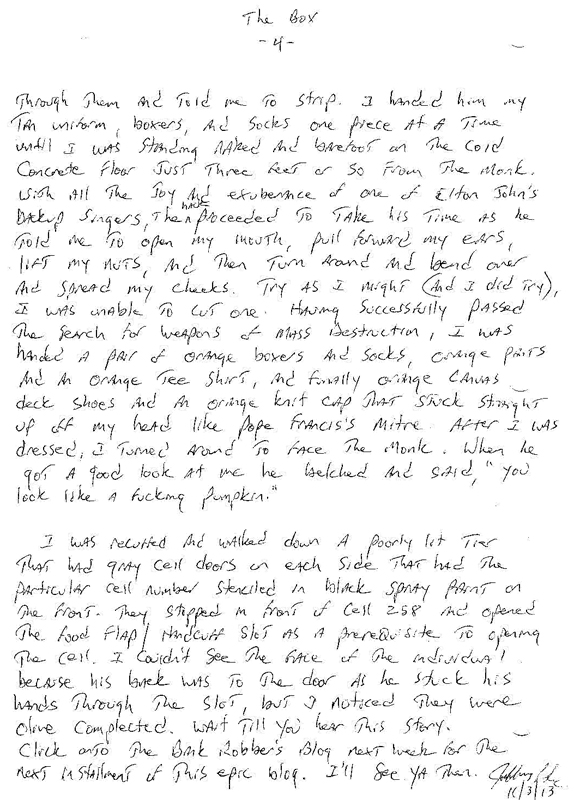 The Box
-4-
Through Them And Told me To strip. I handed him my
Tan uniform, boxers, And Socks one piece At A Time
until I was Standing NAked And barefoot on The Cold
Concrete Floor Just Three feet or So From The Monk.
With All The Joy And exuberance of one of Elton John's
backup Singers, Then proceeded To Take his Time as he
Told me To open my mouth, pull forward my ears,
lift my nuts, And Then Turn Around And bend over
And spread my cheeks. Try As I might (And I did Try),
I was unable To cut one. Having Successfully passed
The Search for weapons of Mass Destruction, I was
handed A pair of orange boxers And Socks, orange pants
And An orange Tee Shirt, And finally orange Canvas
deck Shoes And An orange knit cap That Stuck Straight
up off my head like Pope Francis's Mitre. After I was
dressed, I Turned Around To Face The Monk. When he
got A good look At me he belched And said, "You
look like A Fucking Pumpkin."
I was recuffed And walked down A poorly lit Tier
That had gray Cell doors on each Side That had The
particular cell number stenciled in black Spray paint on
The front. They stopped in front of Cell 258 And opened
The food flap / Handcuff Slot As A prerequisite To opening
The Cell. I Couldn't See The face of The individual
because his back was To The door as he stuck his
hands Through The Slot, but I noticed They were
Olive Complected. Wait Till You hear This Story.
Click onto The Bank Robber's Blog next week for The
next installment of This epic blog. I'll See YA Then.
11/3/13